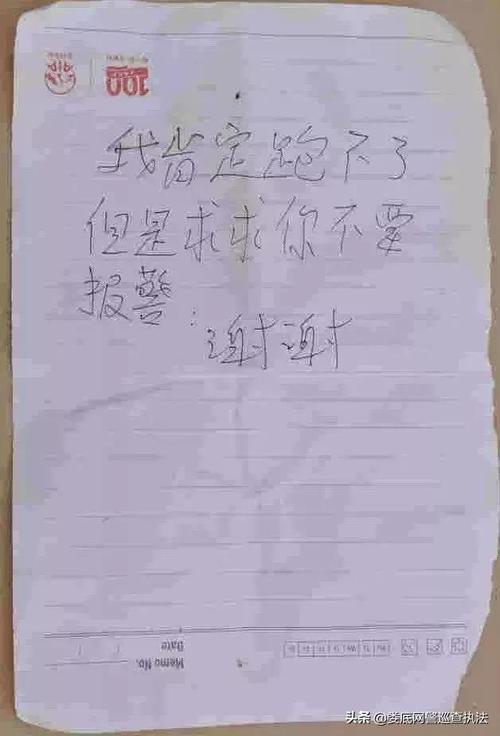 100
我肯定跑不了
但是求求你不要
报警:
谢谢
Date
Memo No.
头条 @娄底网警巡查执法